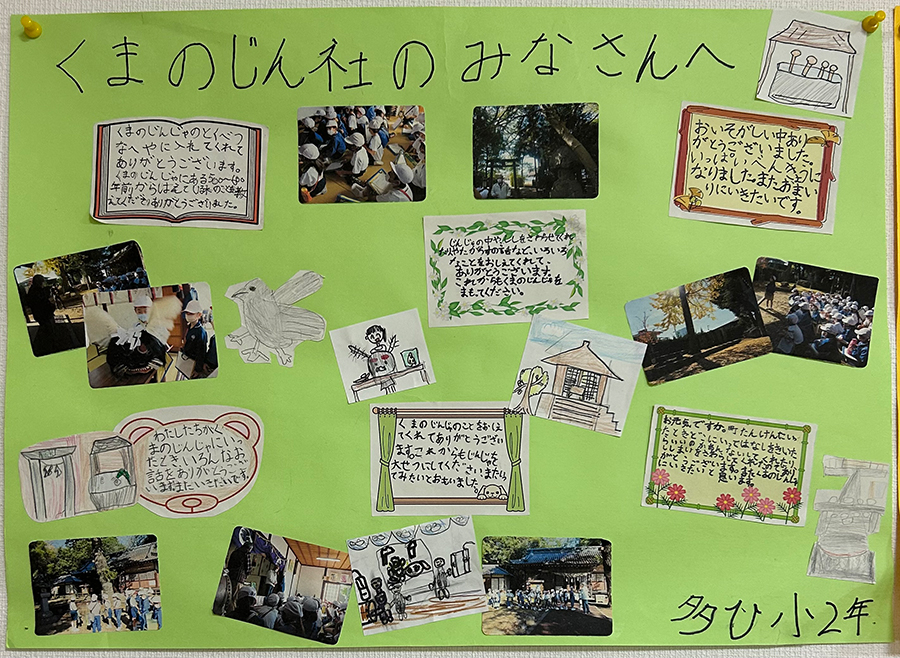 くまのじん社のみなさんへ
くまのじんじゃのとくべつ
なへやに入れてくれて
ありがとうございます。
くまのじんじゃにある500〜600
年前からはえて
ありがとうございました。
おいそがしい中あり
がとうございました。
いっぱいべんきょうに
なりましたまたおまい
りにいきたいです。
じんじゃの中や、ししをさわらせてくれ
たりやたがらすの話など、いろいろ
なことをおしえてくれて、
ありがとうございます。
これからもくまのじんじゃを
まもてください。
わたしたちがく
まのじんじゃにいっ
たとき、いろんなお
話をありがとうご
いきたいです。
くまのじんじゃのことをおしえ
てくれてありがとうござい
ます。これからもじんじゃを
大せつにしてくださいまたい
てみたいとおもいました。
お元気ですか。町たんけんにい
たときとうにいってはなしをきいた
にいきたいと思います。
多ひ小2年